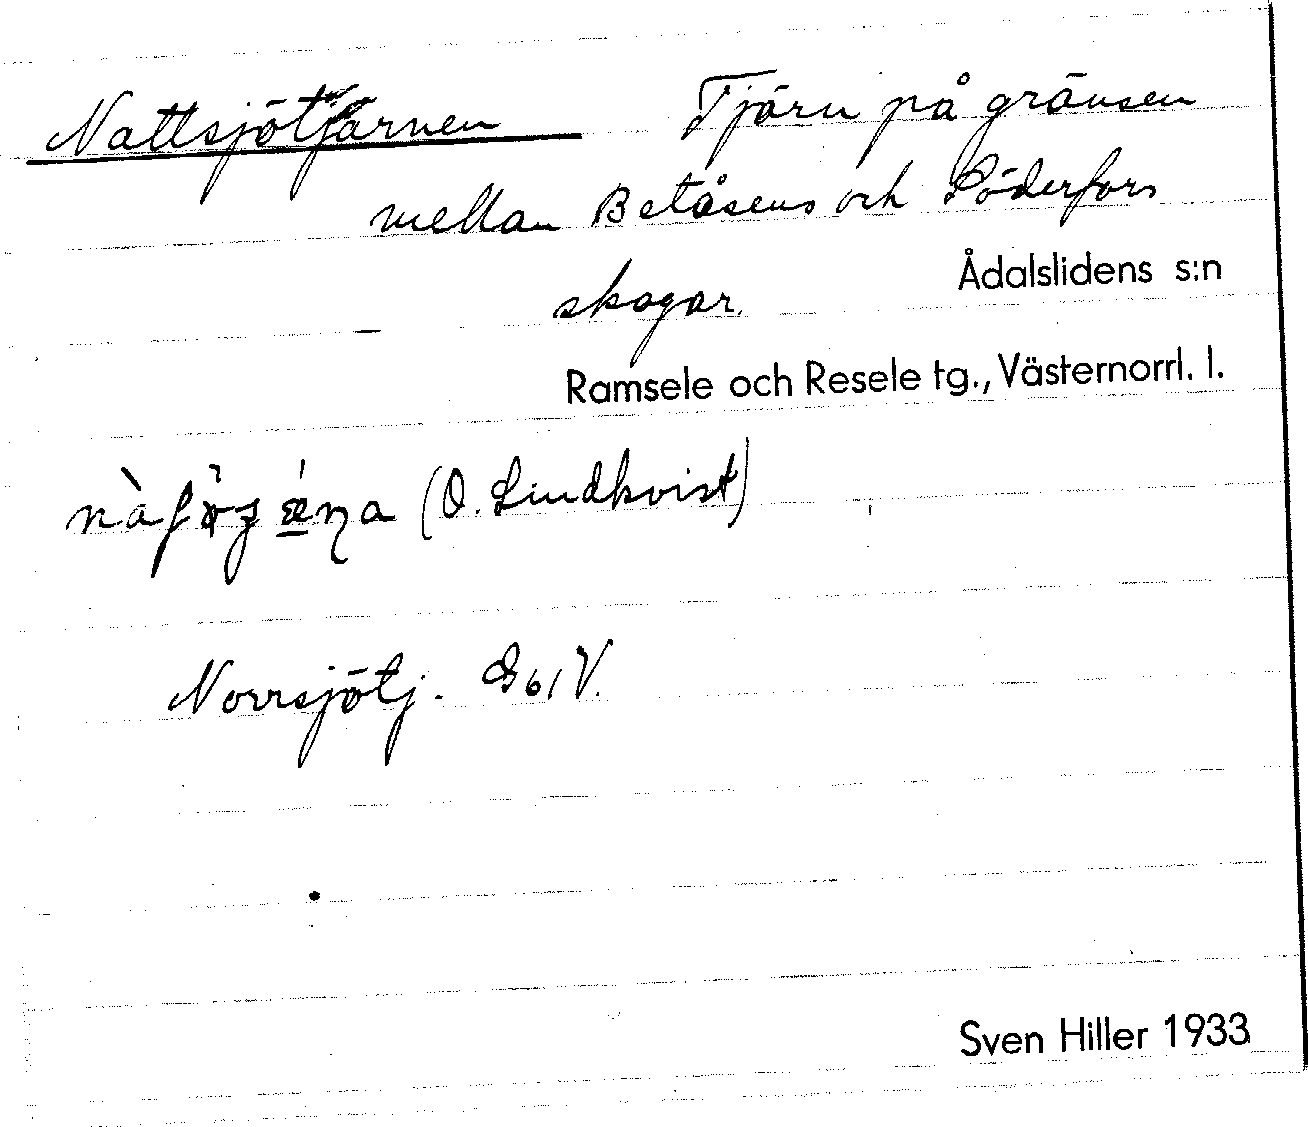 Nattsjötjärnen Tjärn på gränsen
mellan Betåsens och Söderfors
skogar.
Ådalslidens s:n
Ramsele och Resele tg., Västernorrl. l.
(O. Lindkvist)
Norrsjötj. G 61 V.
Sven Hiller 1933